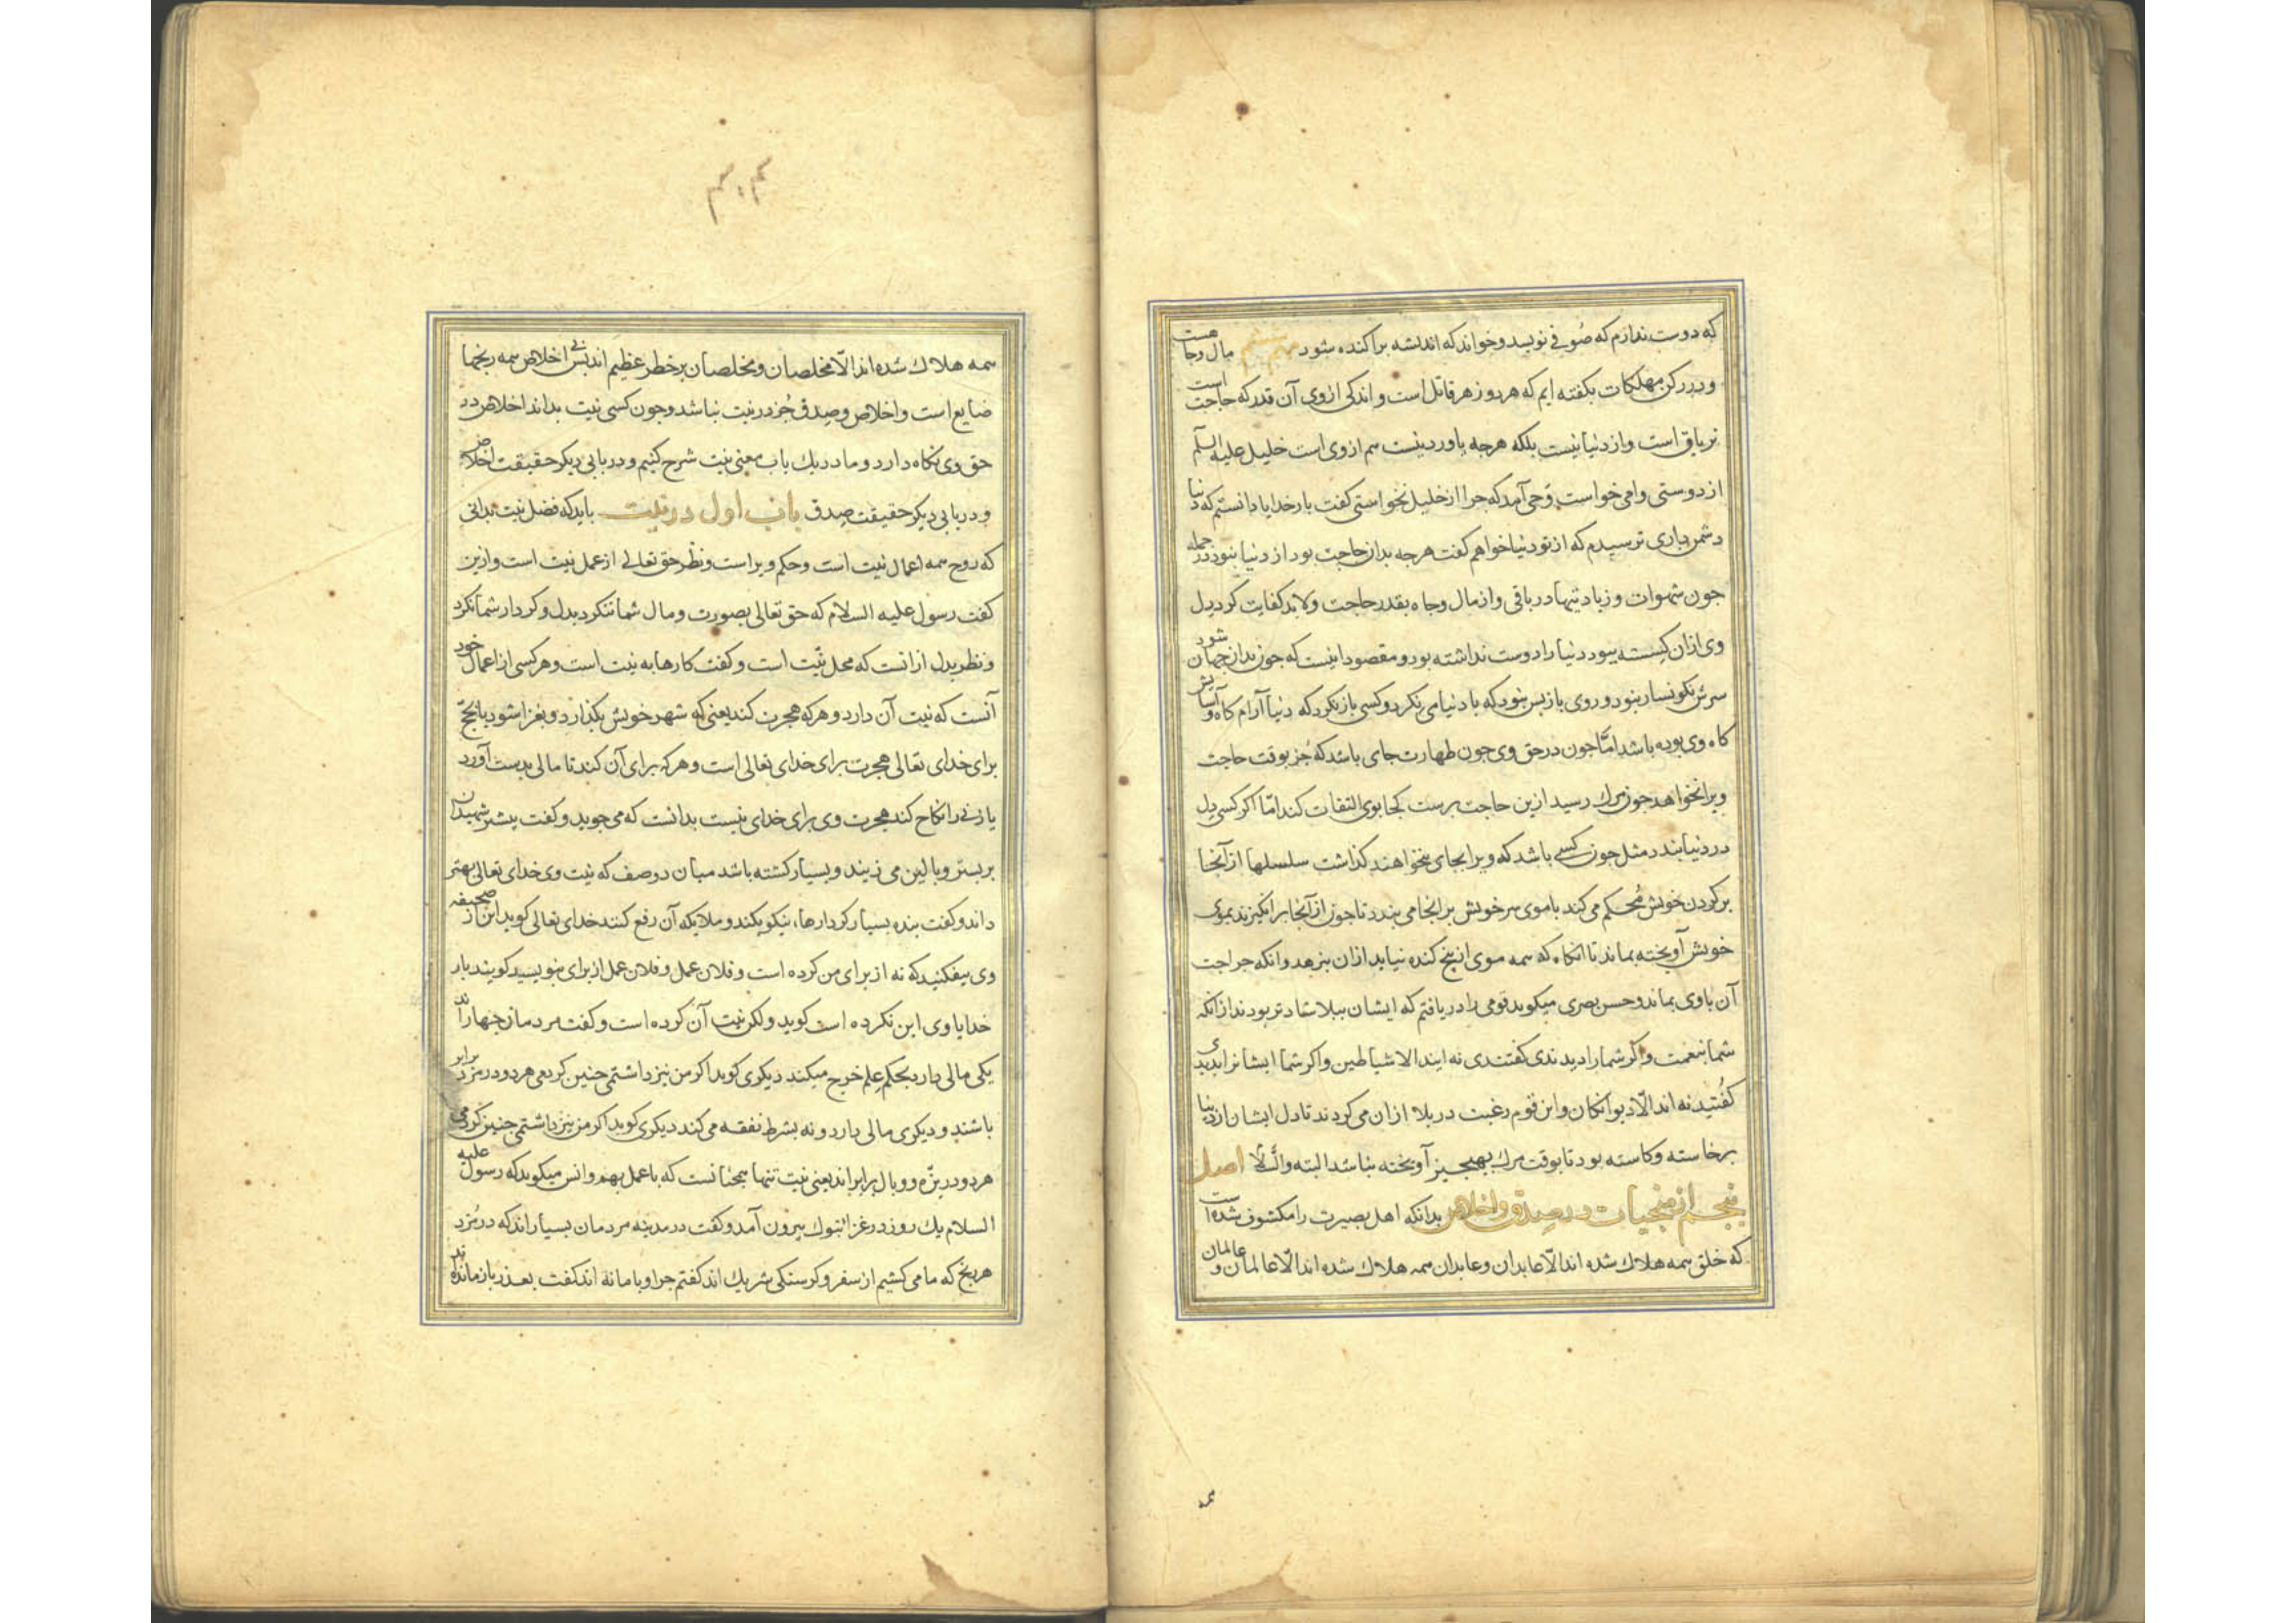 که دوست ندارم که صوفی نویسد و خواند که اندیشه پراکنده شود مهم ششم مال و جاهست
و در رکن مهلکات بگفته ایم که هر دو زهر قاتل است و اندکی ازوی آن قدر که حاجت است
تریاق است و از دنیا نیست بلکه هرچه یا ورد نیست هم از وی است خلیل علیه السلم
از دوستی وامی خواست وحی آمد که چرا از خلیل نخواستی گفت بار خدایا دانستم که دنیا
دشمن داری ترسیدم که از تو دنیا خواهم گفت هرچه بدان حاجت بود از دنیا نبود در جمله
چون شهوات و زیادتیها در باقی و از مال و جاه بقدر حاجت ولابد کفایت کرد دل
وی ازان گسسته بود دنیا را دوست نداشته بود و مقصود اینست که چون بدان جهان شود
سرش نگونسار نبود و روی باز پس نبود که با دنیا می نگرد و کسی باز نگرد که دنیا آرام گاه و آسایش
گاه وی بوده باشد اما چون در حق وی چون طهارت جای باشد که جز بوقت حاجت
ویرا نخواهد چون مرگ رسید ازین حاجت برست کجا بوی التفات کند اما اگر کسی دل
در دنیا بندد مثل چون کسی باشد که ویرا بجای نخواهند گذاشت سلسلها از آنجا
بر گردن خویش محکم می کند یا موی سر خویش بر انجا می بندد تا چون از آنجا برانگیزند بموی
خویش آویخته بماند تا انگاه که همه موی از بیخ کنده نیاید ازان نرهد وانگه جراحت
آن باوی بماند و حسن بصری میگوید قومی را دریافتم که ایشان ببلا شادتر بودند از انکه
شما بنعمت و اگر شما را دیدندی گفتندی نه ایند الا شیاطین و اگر شما ایشانرا بدیدی
گفتید نه اند الا دیوانگان و این قوم رغبت در بلا ازان می کردند تا دل ایشان از دنیا
برخاسته و کاسته بود تا بوقت مرگ بهیچ چیز آویخته نباشد البته والسلا اصل
پنجم از منجیات در صدق و اخلاص بدانکه اهل بصیرت را مکشوف شده است
که خلق همه هلاک شده اند الا عابدان و عابدان همه هلاک شده اند الا عالمان و عالمان
همه
همه هلاک شده اند الا مخلصان و مخلصان بر خطر عظیم اند پس بی اخلاص همه رنجها
ضایع است و اخلاص و صدق جز در نیت نباشد و چون کسی نیت بداند اخلاص در
حق وی نگاه دارد و ما در یک باب معنی نیت شرح کنیم و در بابی دیگر حقیقت اخلاص
و در بابی دیگر حقیقت صدق باب اول در نیت باید که فضل نیت بدانی
که روح همه اعمال نیت است و حکم ویراست و نظر حق تعالی از عمل نیت است و ازین
گفت رسول علیه السلام که حق تعالی بصورت و مال شما ننگرد بدل و کردار شما نگرد
و نظر بدل ازانست که محل نیت است و گفت کارها به نیت است و هر کسی از اعمال خود
آنست که نیت آن دارد و هر که هجرت کند یعنی که شهر خویش بگذارد و بغزا شود یا بحج
برای خدای تعالی هجرت برای خدای تعالی است و هر که برای آن کند تا مالی بدست آورد
یا زنی را نکاح کند هجرت وی برای خدای نیست بدانست که می جوید و گفت بیشتر شهیدان
بر بستر و بالین می زیند و بسیار کشته باشد میان دو صف که نیت وی خدای تعالی بهتر
داند و گفت بنده بسیار کردارها نیکو بکند و ملایکه آن رفع کنند خدای تعالی گوید این از صحیفه
وی بیفکنید که نه از برای من کرده است و فلان عمل و فلان عمل از برای بنویسید گویند بار
خدایا وی این نکرده است گوید ولکن نیت آن کرده است و گفت مردمان چهار اند
یکی مالی دارد بحکم علم خرج میکند دیگری گوید اگر من نیز داشتمی چنین کردمی هر دو در مزد برابر
باشند و دیگری مالی دارد و نه بشرط نفقه می کند دیگری گوید اگر من نیز داشتمی چنین کردمی
هر دو در بزه و وبال برابر اند یعنی نیت تنها همچنانست که با عمل بهم و انس میگوید که رسول علیه
السلام یک روز در غزا تبوک بیرون آمد و گفت در مدینه مردمان بسیار اند که در مزد
هر رنج که ما می کشیم از سفر و گرسنگی شریک اند گفتم چرا و با ما نه اند گفت بعذر باز مانده اند